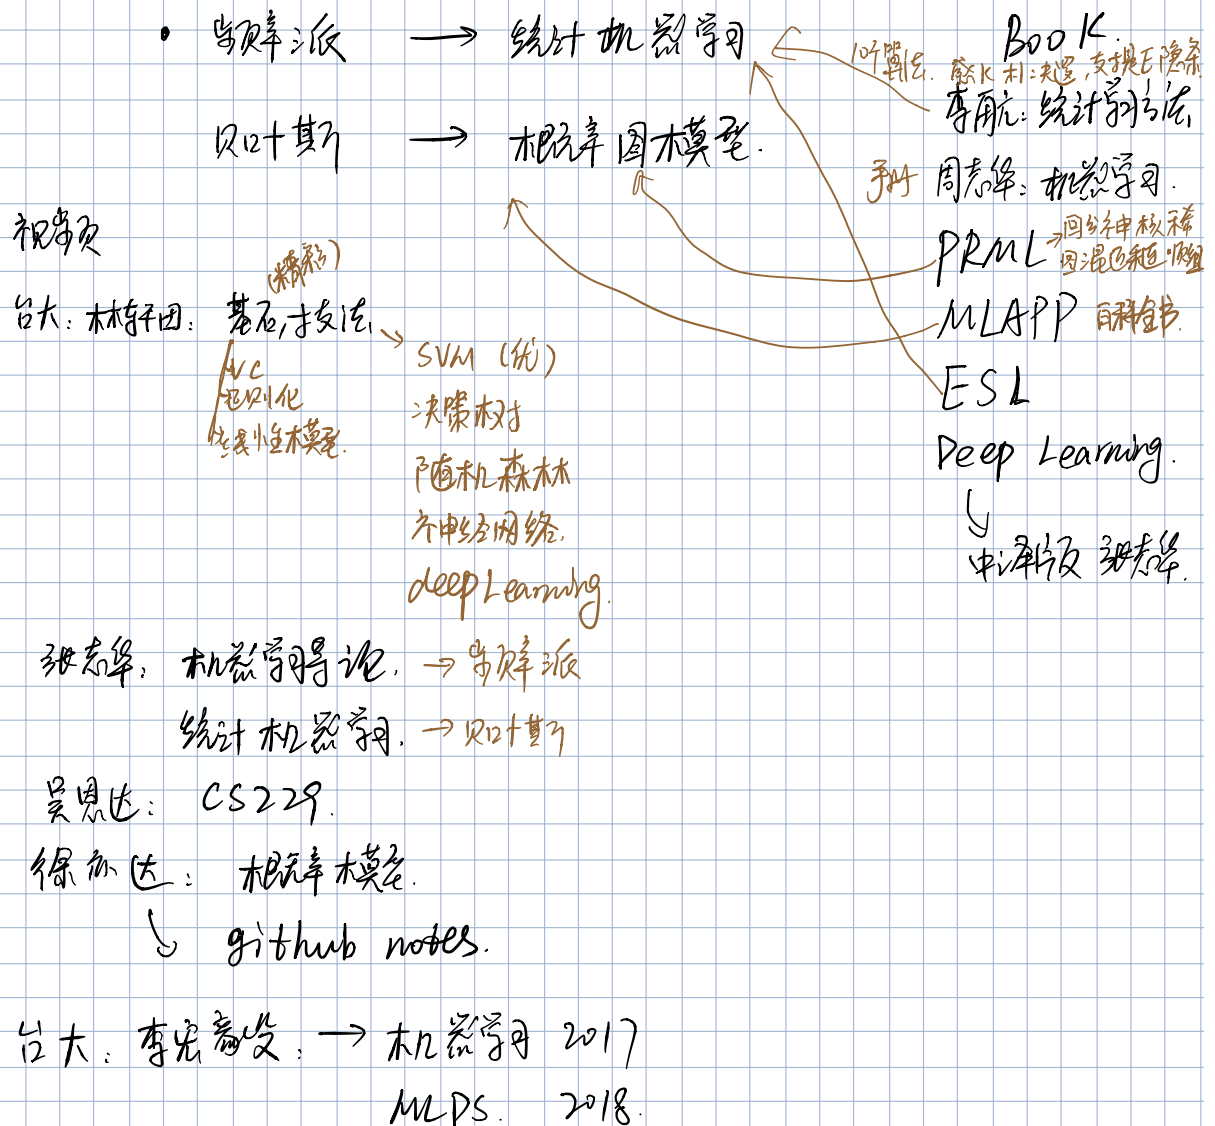 频率派 → 统计机器学习
贝叶斯 → 概率图模型.
Book.
10个算法. 感K朴决逻,支提E隐条
李航: 统计学习方法
手册 周志华: 机器学习.
PRML → 回分神核稀
图混近采连顺组
MLAPP 百科全书.
ESL
Deep Learning.
中译版 张志华.
视频
台大: 林轩田: 基石,技法
(精彩)
VC
正则化
线性模型.
SVM (优)
决策树
随机森林
神经网络.
deep Learning.
张志华: 机器学习导论. → 频率派
统计机器学习. → 贝叶斯
吴恩达: CS229.
徐亦达: 概率模型.
github notes.
台大: 李宏毅 → 机器学习 2017
MLDS. 2018.